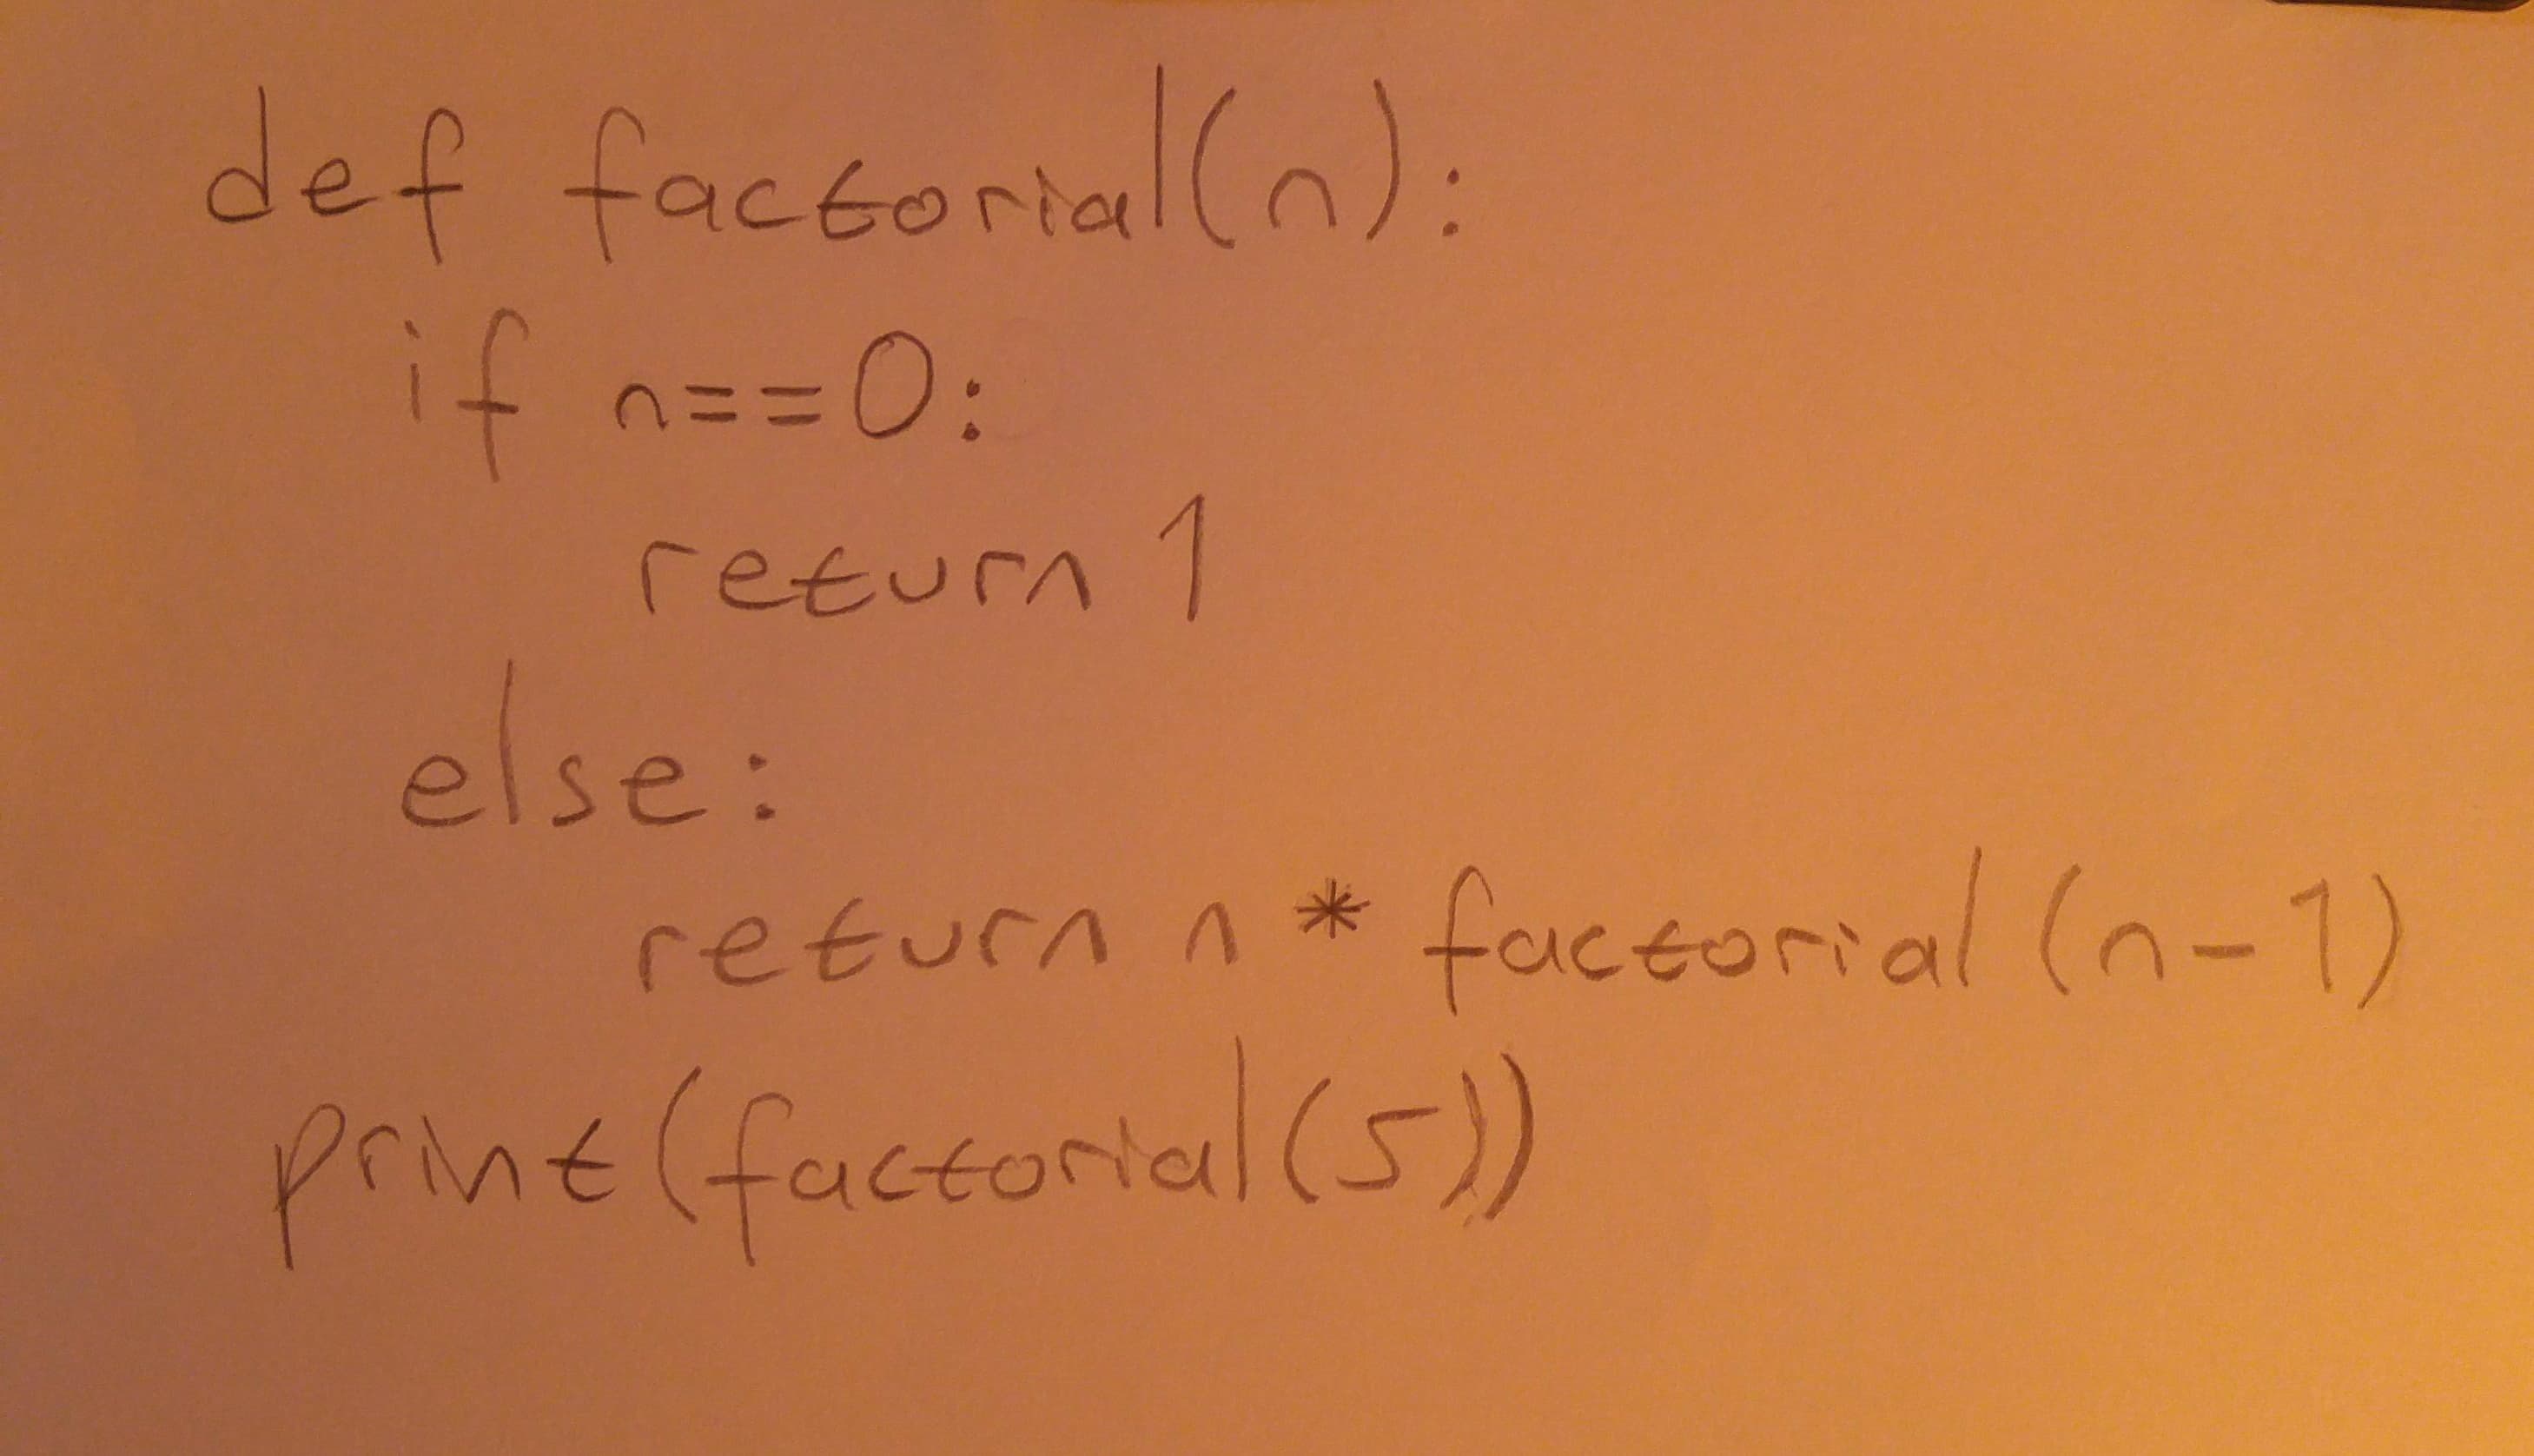 def factorial(n):
    if n==0:
        return 1
    else:
        return n * factorial (n-1)
print(factorial(5))